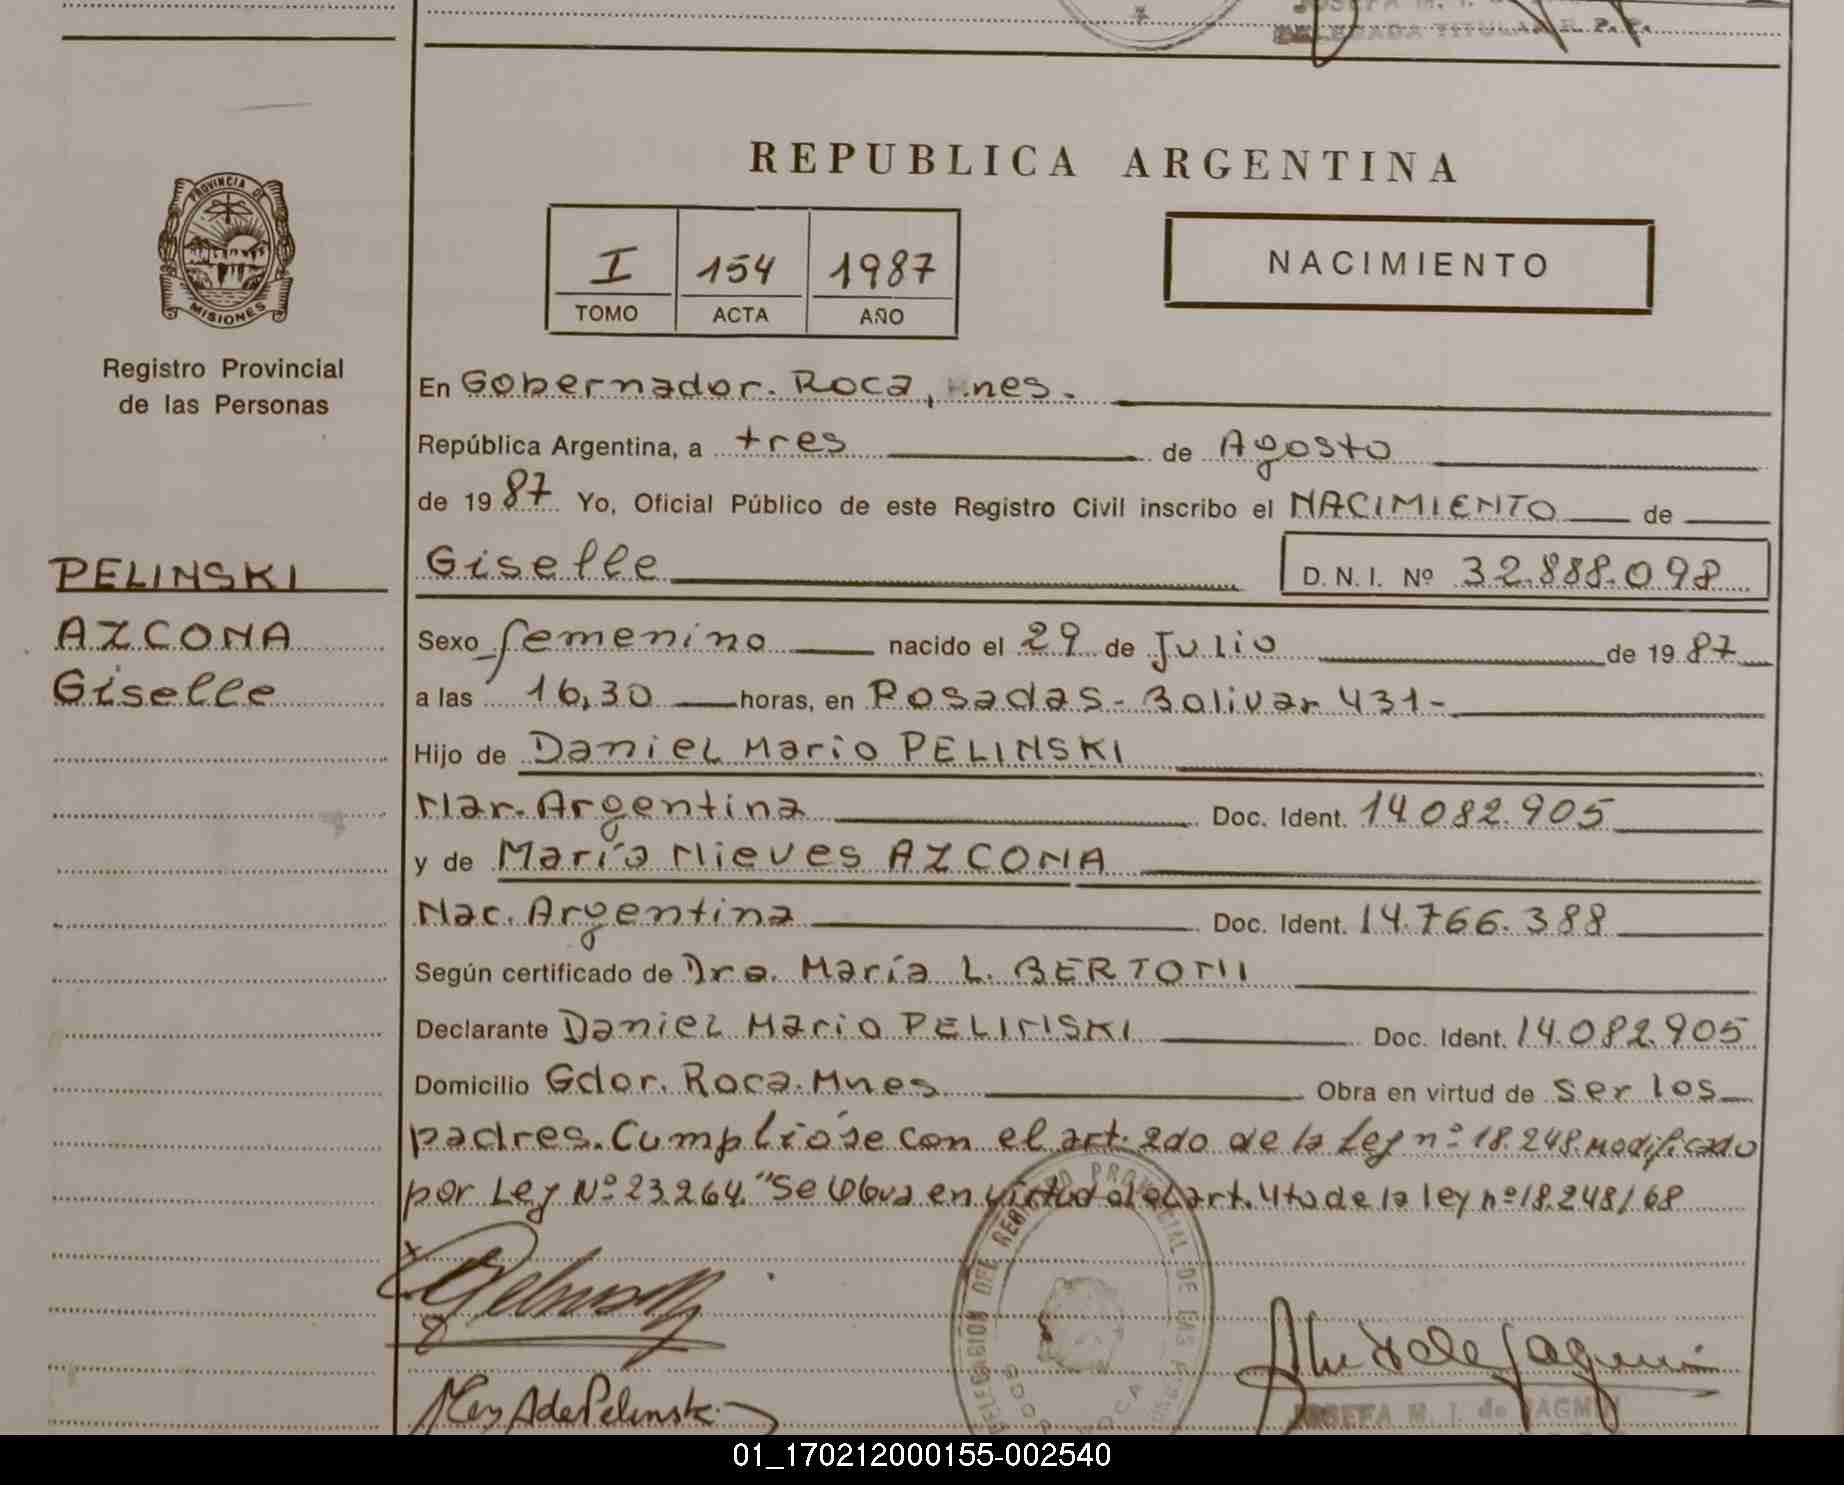 DELEGADA TITULAR R. P. P.
REPUBLICA ARGENTINA
PROVINCIA DE
MISIONES
Registro Provincial
de las Personas
I 154 1987
TOMO ACTA AÑO
NACIMIENTO
En Gobernador. Roca, Mnes.
República Argentina, a tres de Agosto
de 1987 Yo, Oficial Público de este Registro Civil inscribo el NACIMIENTO de
PELINSKI
AZCONA
Giselle
Giselle D. N. I. Nº 32.888.098
Sexo femenino nacido el 29 de Julio de 1987
a las 16,30 horas, en Posadas - Bolivar 431-
Hijo de Daniel Mario PELINSKI
Nac. Argentina Doc. Ident. 14.082.905
y de María Nieves AZCONA
Nac. Argentina Doc. Ident. 14.766.388
Según certificado de Dra. María L. BERTONI
Declarante Daniel Mario PELINSKI Doc. Ident. 14.082.905
Domicilio Gdor. Roca. Mnes Obra en virtud de ser los
padres. Cumplióse con el art. 2do de la Ley nº 18.248. modificado
por Ley Nº 23.264. "Se obra en virtud del art. 4to de la ley nº 18.248/68
DELEGACION DEL REGISTRO PROVINCIAL DE LAS
ROCA
Ney A de Pelinski
JOSEFA M. I. de JAGMIN
01_170212000155-002540